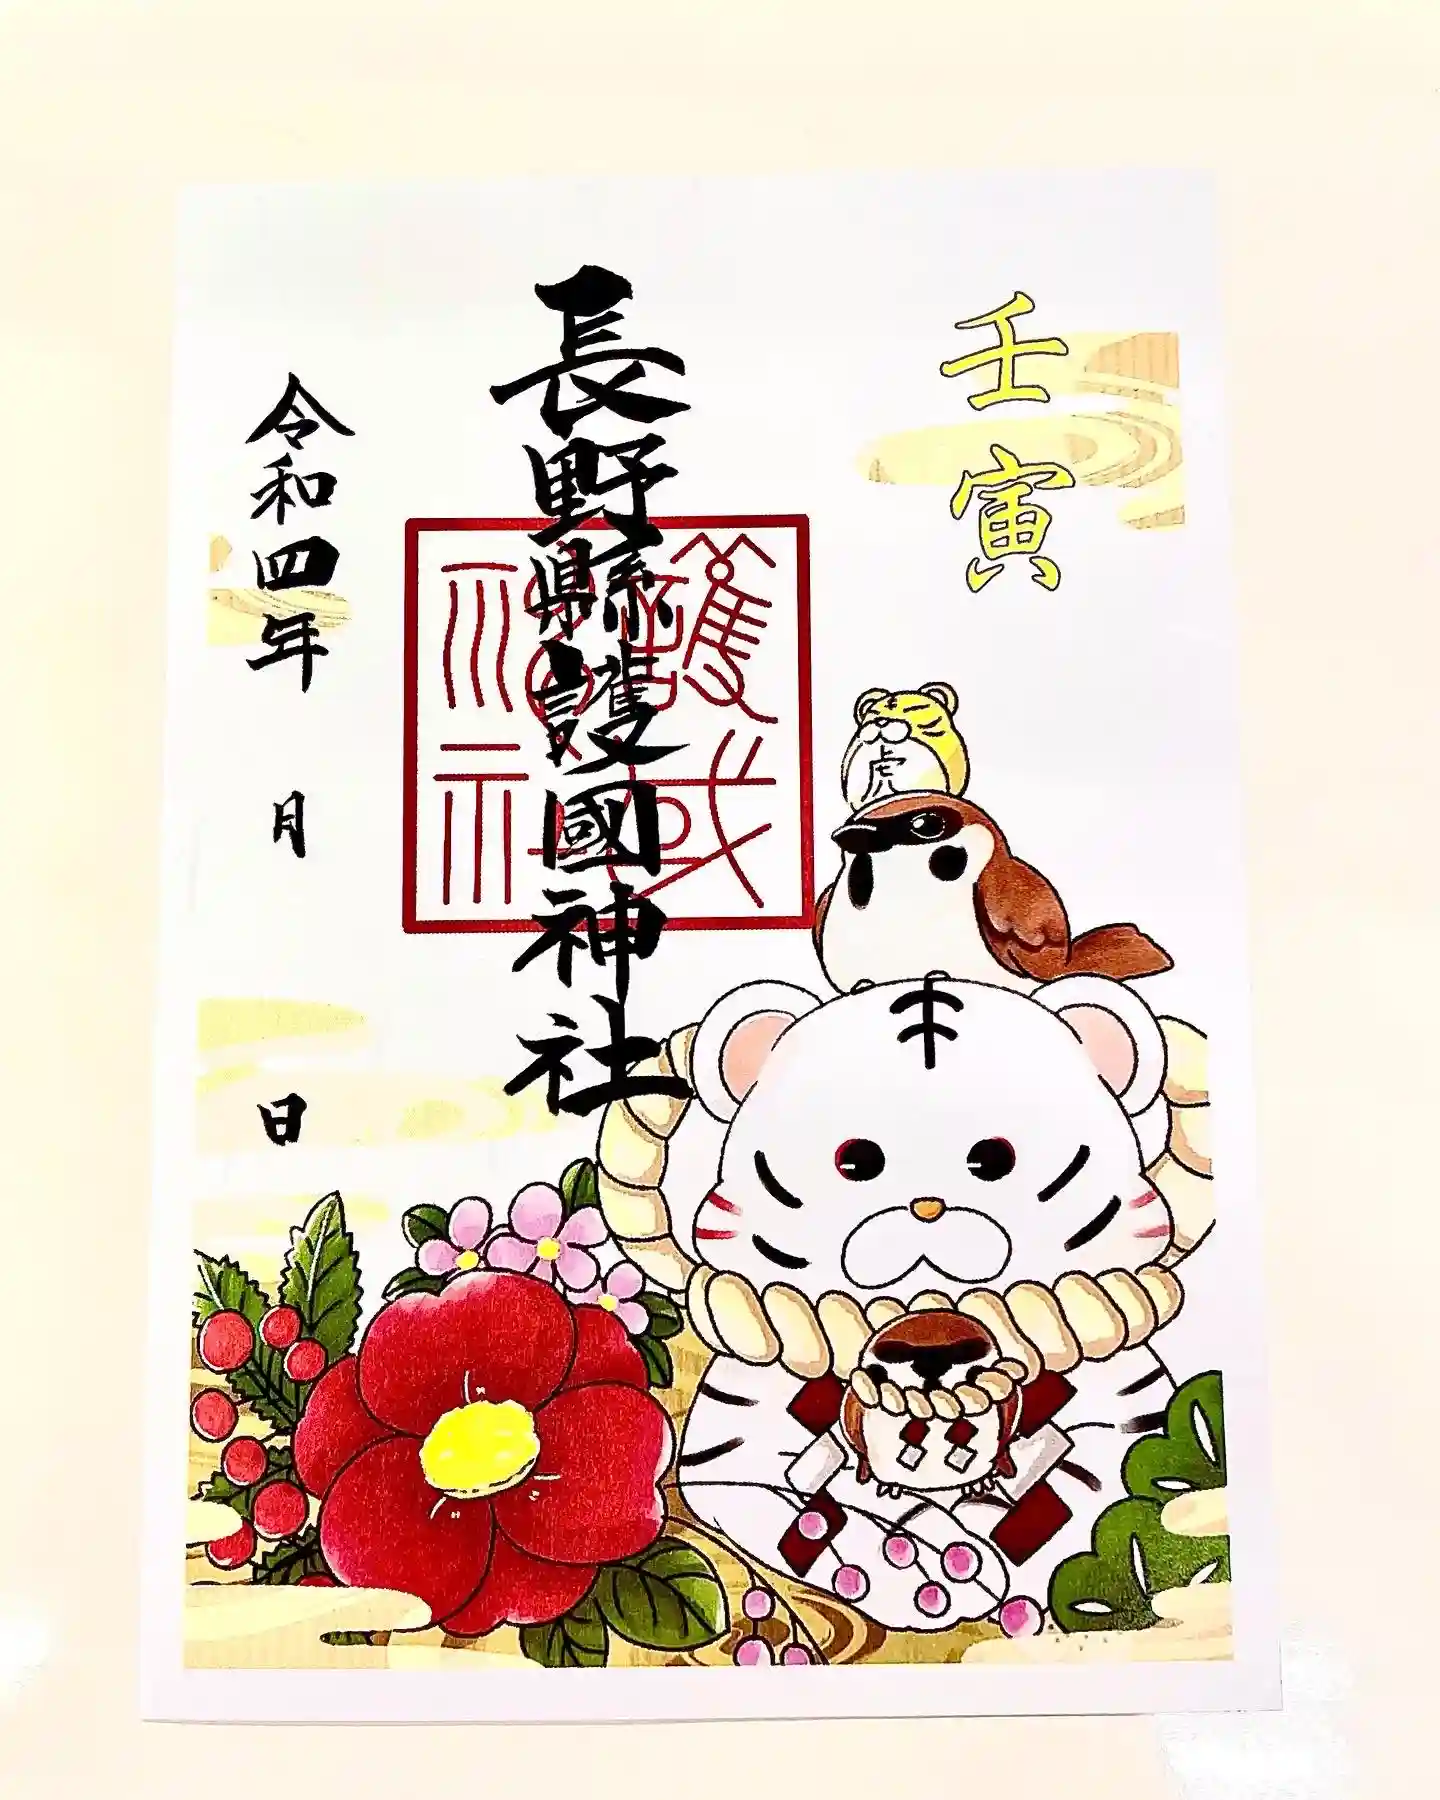 壬寅
虎
長野縣護國神社
護国神社
令和四年 月 日